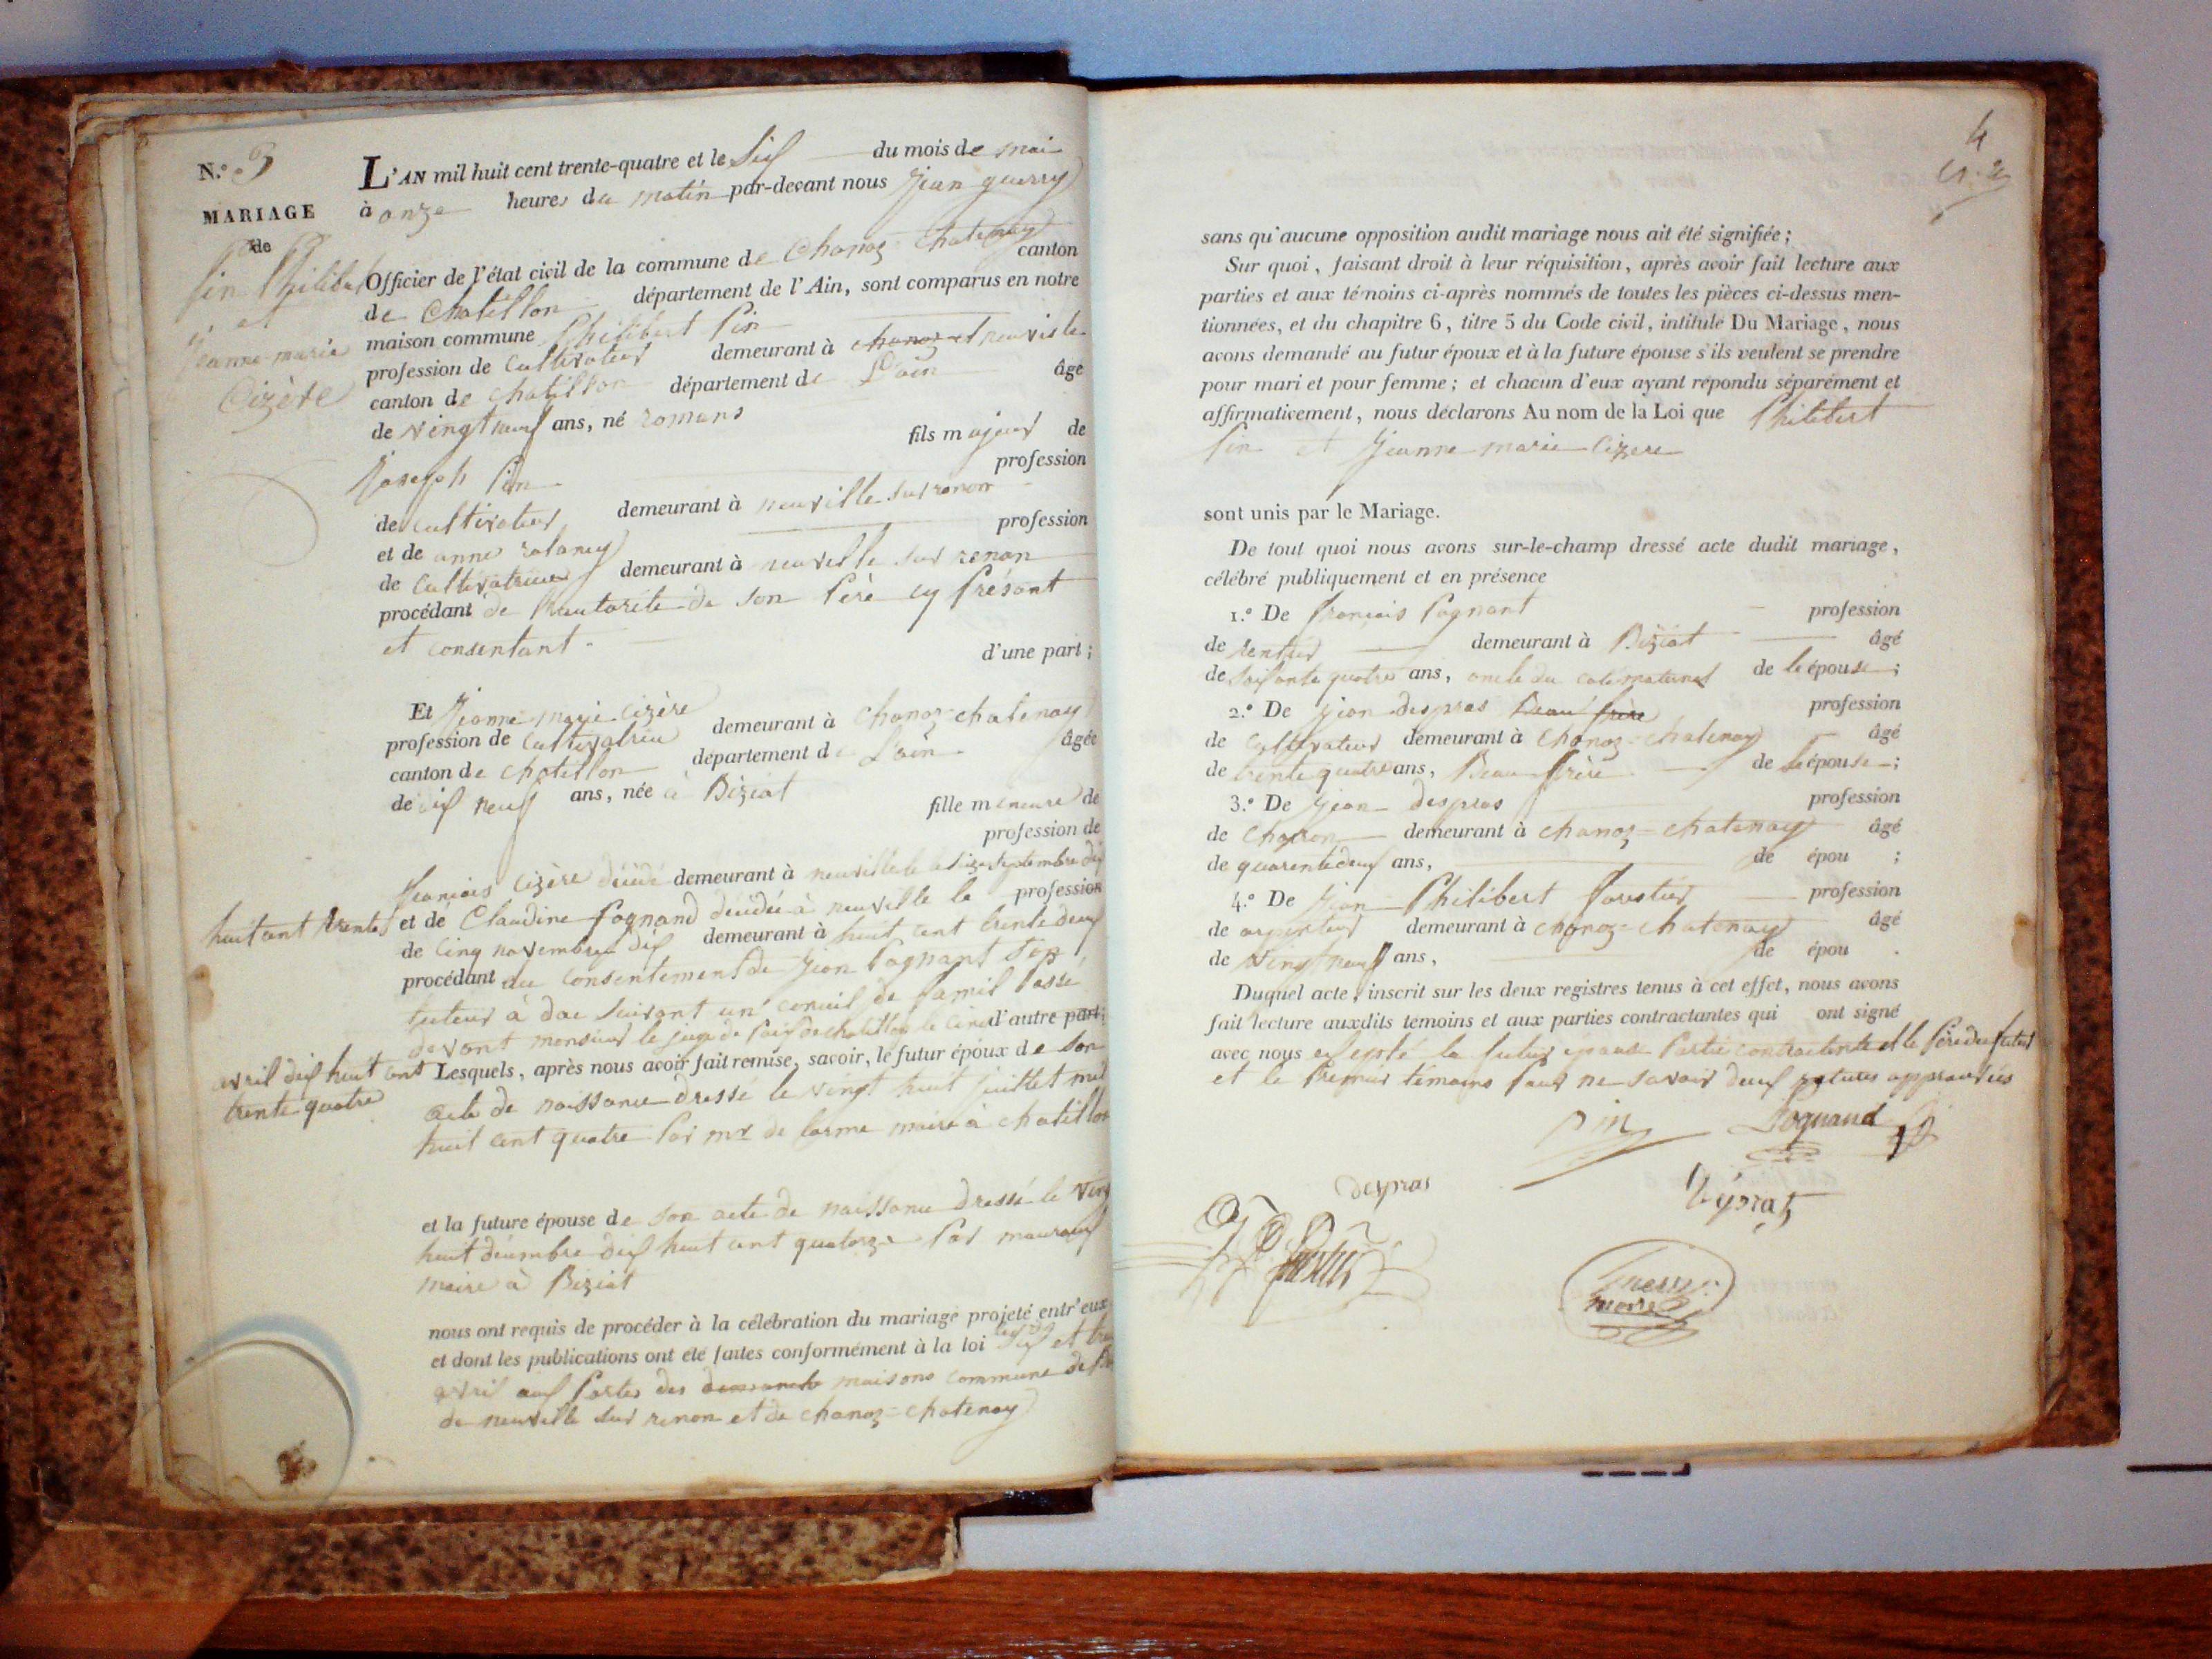 N.° 3
MARIAGE
de
Pin Philibert
et
jeanne marie
Cizère
L'AN mil huit cent trente-quatre et le Six du mois de mai
à onze heures du matin par-devant nous jean guerry
Officier de l'état civil de la commune de Chanoz Chatenay canton
de Chatillon département de l'Ain, sont comparus en notre
maison commune Philibert Pin
profession de Cultivateur demeurant à chanoz et neuville
canton de chatillon département de L'ain âgé
de vingt neuf ans, né romans
fils majeur de
joseph Pin profession
de cultivateur demeurant à neuville sur renon
et de anne profession
de Cultivatrice demeurant à neuville sur renon
procédant de l'autorité de son Père cy Présant
et consentant
d'une part;
Et jeanne marie cizère
profession de Cultivatrice demeurant à Chanoz-chatenay
canton de chatillon département de L'ain âgée
de dix neuf ans, née à Biziat
fille mineure de
profession de
francois Cizère décédé demeurant à neuville le septembre dix
huit cent trente et de Claudine Pognand décédée à neuville le profession
de cinq novembre dix demeurant à huit cent trente deux
procédant du consentement de jean Pagnant son
tuteur à suivant un conseil de famil Passé
devant monsieur le juge de Paix de chatillon le cinq d'autre part;
avril dix huit cent
trente quatre
Lesquels, après nous avoir fait remise, savoir, le futur époux de son
acte de naissance dressé le vingt huit juillet mil
huit cent quatre Par mr de maire à chatillon
et la future épouse de son acte de naissance dressé le Vingt
huit décembre dix huit cent quatorze Par
maire à Biziat
nous ont requis de procéder à la célébration du mariage projeté entr'eux
et dont les publications ont été faites conformément à la loi et
avril aux Portes des maisons commune de
de neuville sur renon et de chanoz=chatenay
4
sans qu'aucune opposition audit mariage nous ait été signifiée;
Sur quoi, faisant droit à leur réquisition, après avoir fait lecture aux
parties et aux témoins ci-après nommés de toutes les pièces ci-dessus men-
tionnées, et du chapitre 6, titre 5 du Code civil, intitulé Du Mariage, nous
avons demandé au futur époux et à la future épouse s'ils veulent se prendre
pour mari et pour femme; et chacun d'eux ayant répondu séparément et
affirmativement, nous déclarons Au nom de la Loi que Philibert
Pin et jeanne marie Cizere
sont unis par le Mariage.
De tout quoi nous avons sur-le-champ dressé acte dudit mariage,
célébré publiquement et en présence
1.° De francois Pognant profession
de rentier demeurant à Biziat âgé
de soixante quatre ans, oncle du coté maternel de l'épouse;
2.° De jean despras Beau frère profession
de cultivateur demeurant à Chanoz=chatenay âgé
de trente quatre ans, Beau frère de l'épouse;
3.° De jean despras profession
de charron demeurant à chanoz=chatenay âgé
de quarente deux ans, de épou ;
4.° De jean Philibert forestier profession
de arpenteur demeurant à chanoz=chatenay âgé
de vingt neuf ans, de épou .
Duquel acte, inscrit sur les deux registres tenus à cet effet, nous avons
fait lecture auxdits témoins et aux parties contractantes qui ont signé
avec nous excepté la future épouse Partie contractante et le Père du futur
et le Premier témoins Pour ne savoir deux ratures approuvées
Pin Pognand
despras
guerry
maire